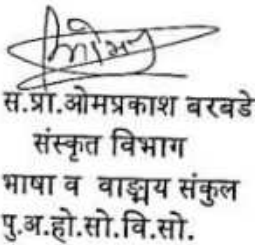 स.प्रा.ओमप्रकाश बरबडे
संस्कृत विभाग
भाषा व वाङ्मय संकुल
पु.अ.हो.सो.वि.सो.